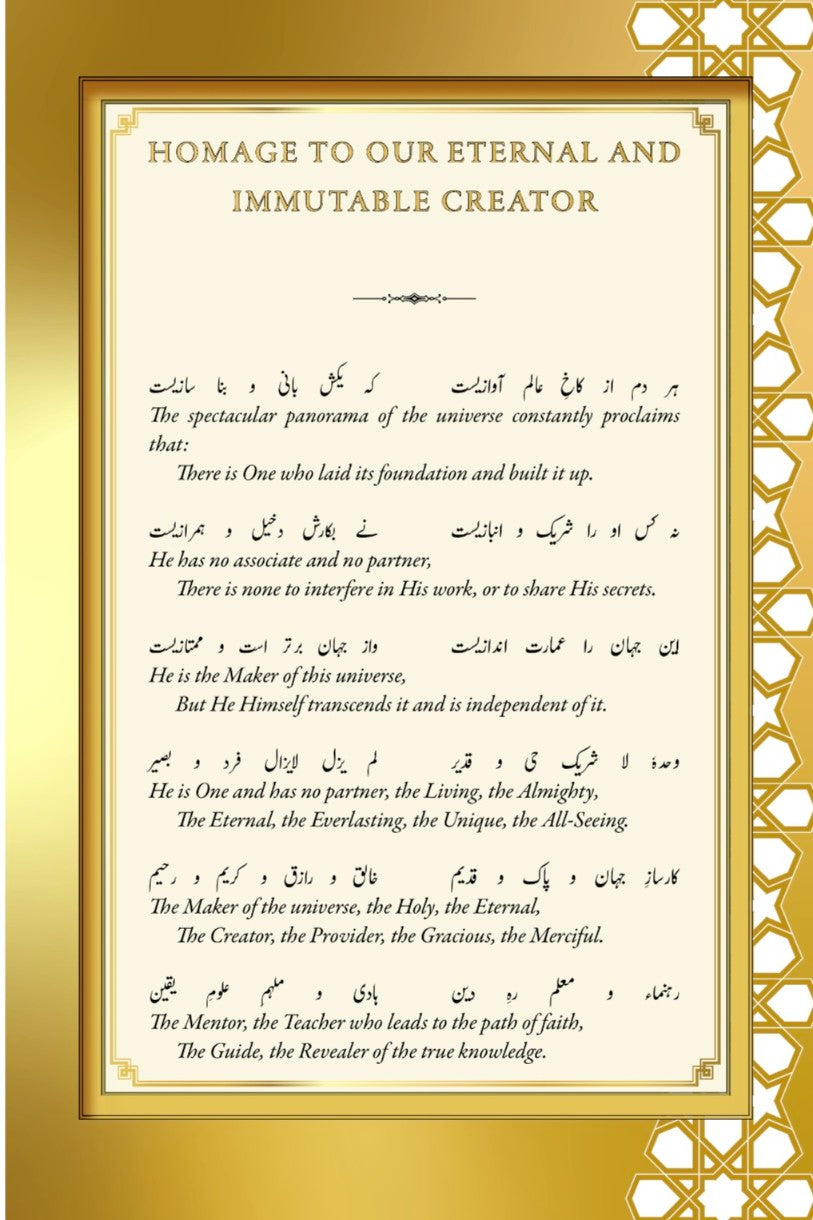 HOMAGE TO OUR ETERNAL AND
IMMUTABLE CREATOR
ہر دم از کاخِ عالم آوازیست کہ یکش بانی و بنا سازیست
The spectacular panorama of the universe constantly proclaims
that:
There is One who laid its foundation and built it up.
نہ کس او را شریک و انبازیست نے بکارش دخیل و ہمرازیست
He has no associate and no partner,
There is none to interfere in His work, or to share His secrets.
این جہان را عمارت اندازیست واز جہان برتر است و ممتازیست
He is the Maker of this universe,
But He Himself transcends it and is independent of it.
وحدہٗ لا شریک حی و قدیر لم یزل لایزال فرد و بصیر
He is One and has no partner, the Living, the Almighty,
The Eternal, the Everlasting, the Unique, the All-Seeing.
کارسازِ جہان و پاک و قدیم خالق و رازق و کریم و رحیم
The Maker of the universe, the Holy, the Eternal,
The Creator, the Provider, the Gracious, the Merciful.
رہنماء و معلم رہِ دین ہادی و ملہم علومِ یقین
The Mentor, the Teacher who leads to the path of faith,
The Guide, the Revealer of the true knowledge.